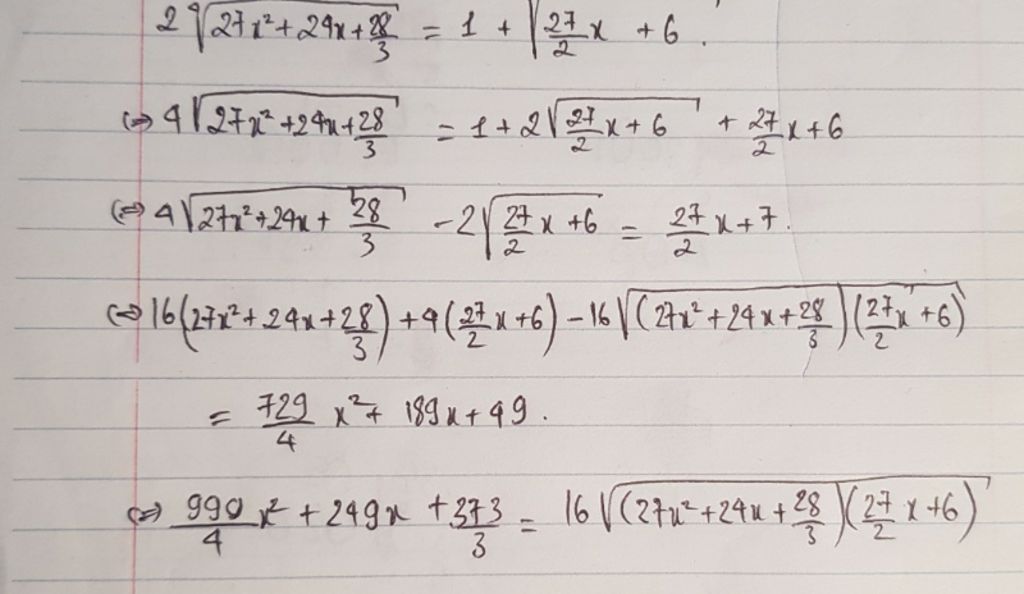 2∜(27x² + 24x + 28/3) = 1 + √(27/2 x + 6).
⇔ 4√(27x² + 24x + 28/3) = 1 + 2√(27/2 x + 6) + 27/2 x + 6
⇔ 4√(27x² + 24x + 28/3) - 2√(27/2 x + 6) = 27/2 x + 7.
⇔ 16(27x² + 24x + 28/3) + 4(27/2 x + 6) - 16√((27x² + 24x + 28/3)(27/2 x + 6))
= 729/4 x² + 189x + 49.
⇔ 999/4 x² + 249x + 373/3 = 16√((27x² + 24x + 28/3)(27/2 x + 6))